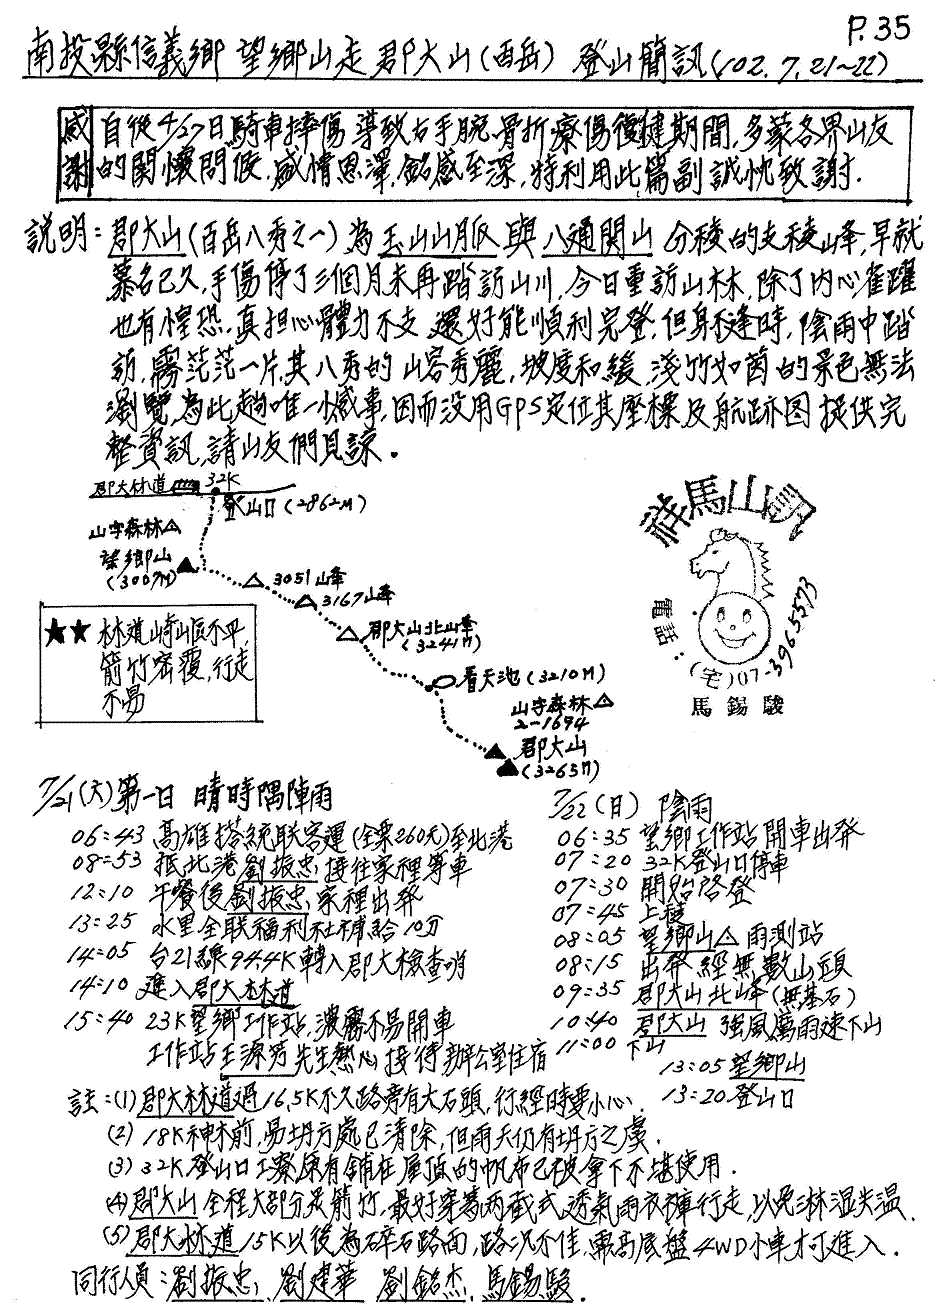 P.35
南投縣信義鄉 望鄉山走郡大山(百岳) 登山簡訊(102.7.21~22)
感謝
自後4/27日騎車摔傷導致右手腕骨折療傷復健期間,多蒙各界山友
的関懷問候,盛情恩澤,銘感至深,特利用此篇副誠忱致謝.
說明:郡大山(百岳八秀之一)為玉山山脈與八通関山分稜的支稜山峰,早就
慕名已久,手傷停了三個月未再踏訪山川,今日重訪山林,除了內心雀躍
也有惶恐,真担心體力不支 還好能順利完登,但身不逢時,陰雨中踏
訪,霧茫茫一片,其八秀的山容秀麗,坡度和緩,淺竹如茵的景色無法
瀏覽,為此趟唯一憾事,因而没用GPS定位其座標及航跡图提供完
整資訊,請山友們見諒.
郡大林道 32K
登山口(2862M)
山字森林△
望鄉山
(3007M)
3051山峰
3167山峰
郡大山北峰
(3241M)
看天池(3210M)
山字森林△
2-1694
郡大山
(3265M)
★★ 林道崎嶇不平,
箭竹密覆,行走
不易
祥馬山房
電話:(宅)07-3965573
馬錫駿
7/21(六)第一日 晴時隅陣雨
06:43 高雄搭統联客運(全票260元)至北港
08:53 抵北港劉振忠接往家裡等車
12:10 午餐後劉振忠家裡出発
13:25 水里全联福利社補給10分
14:05 台21線94.4K轉入郡大檢查哨
14:10 進入郡大林道
15:40 23K望鄉工作站,濃霧不易開車
工作站王源秀先生熱心接待辦公室住宿
7/22(日) 陰雨
06:35 望鄉工作站開車出発
07:20 32K登山口停車
07:30 開始啓登
07:45 上稜
08:05 望鄉山△雨測站
08:15 出発經無數山頭
09:35 郡大山北峰(無基石)
10:40 郡大山 強風驟雨速下山
11:00 下山
13:05 望鄉山
13:20 登山口
註:(1)郡大林道過16.5K不久路旁有大石頭,行經時要小心.
(2) 18K神木前,易坍方處已清除,但雨天仍有坍方之虞.
(3) 32K登山口工寮原有鋪在屋頂的帆布已被拿下不堪使用.
(4)郡大山全程大部分是箭竹,最好穿著两截式透氣雨衣褲行走,以免淋湿失温.
(5)郡大林道15K以後為碎石路面,路況不佳,需高底盤4WD小車才可進入.
同行人員:劉振忠、劉建華 劉銘杰、馬錫駿.